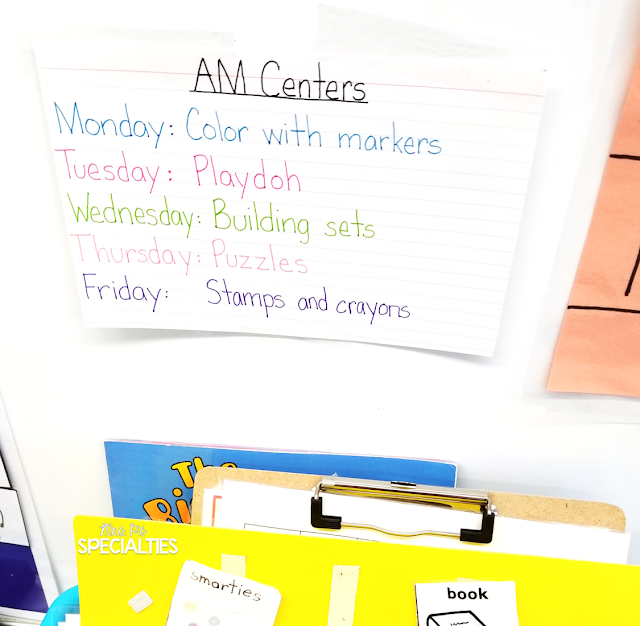 AM Centers
Monday: Color with markers
Tuesday: Playdoh
Wednesday: Building sets
Thursday: Puzzles
Friday: Stamps and crayons
The
SPECIALTIES
smarties
book